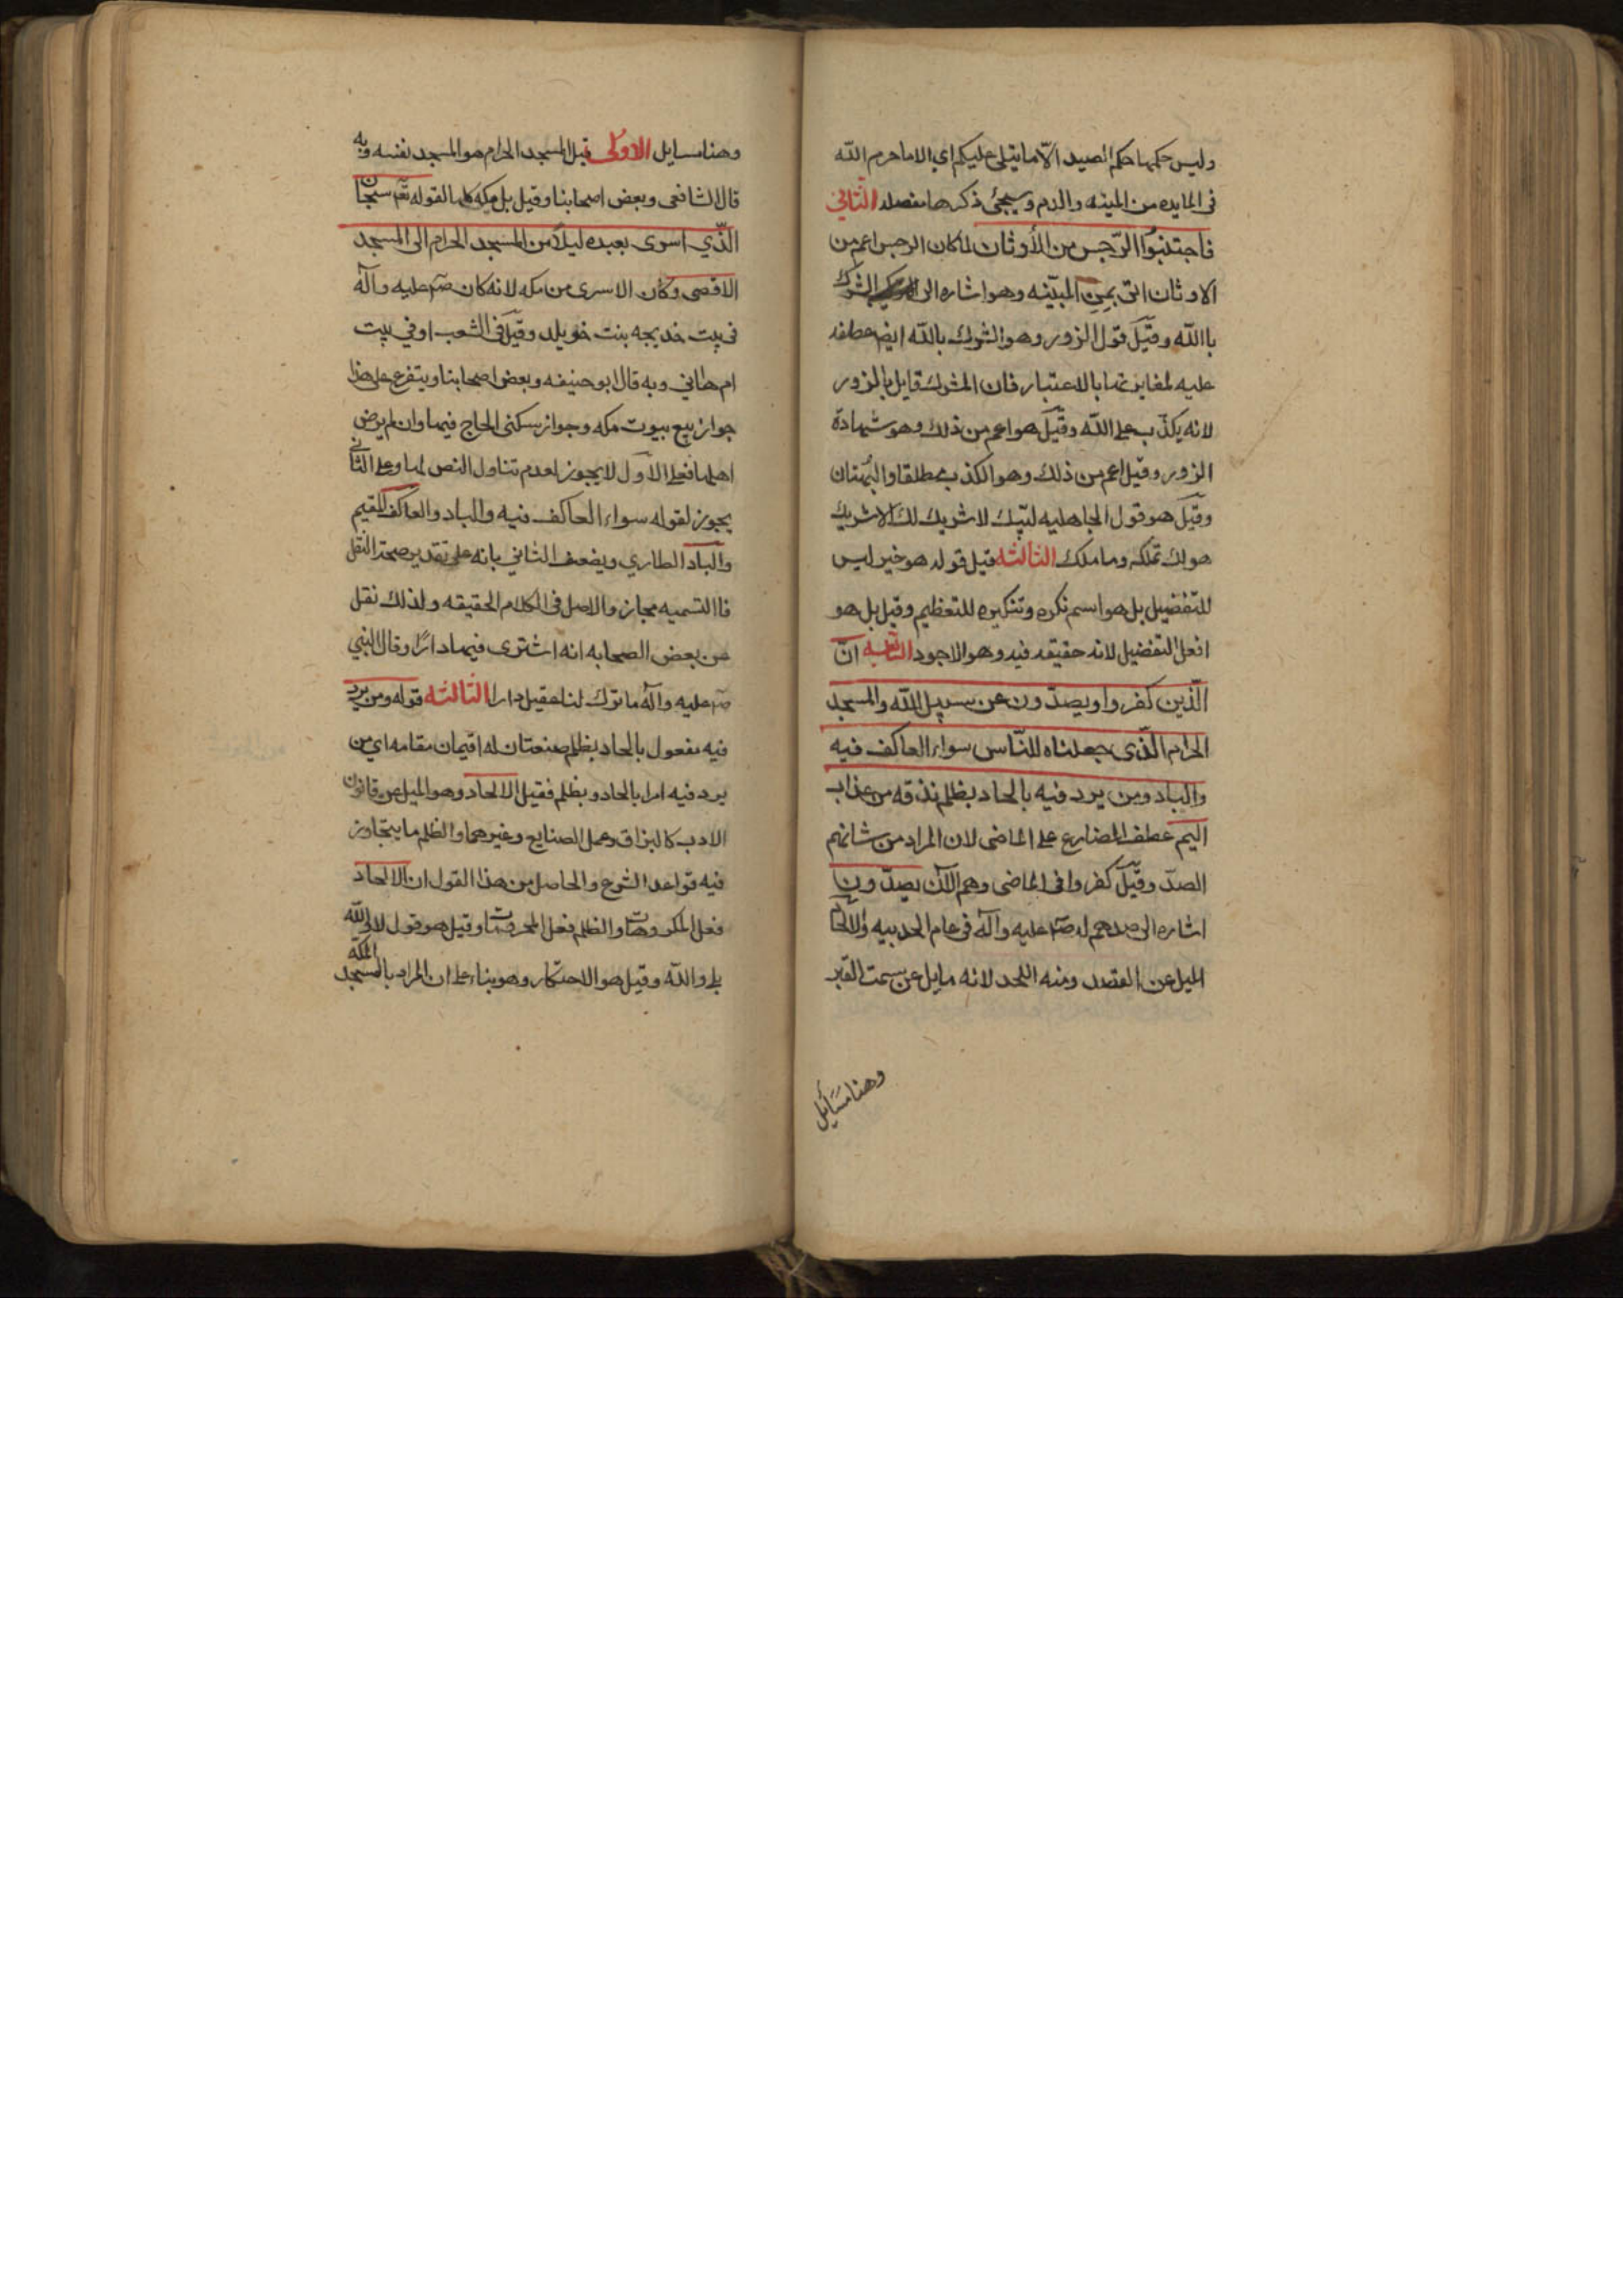 وليس حكمها حكم الصيد الّا ما يتلى عليكم اي الا ما حرم اللّه
في المايده من الميته والدم وسيجئ ذكرها مفصله الثّاني
فاجتنبُوا الرّجس من الأوثان لما كان الرجس اعم من
الاوثان اتى بمن المبيّنه وهو اشاره الى الشرك
باللّه وقيل قول الزور وهو الشرك باللّه ايض عطفه
عليه لمغايرتهما بالاعتبار فان المشرك قايل بالزور
لانه يكذّب على اللّه وقيل هو اعم من ذلك وهو شهادة
الزور وقيل اعم من ذلك وهو الكذب مطلقا والبُهتان
وقيل هو قول الجاهليه لبّيك لا شريك لك الا شريك
هو لك تملكه وما ملك الثالثه قيل قوله هو خير ليس
للتفضيل بل هو اسم نكره وتنكيره للتعظيم وقيل بل هو
افعل التفضيل لانه حقيقه فيه وهو الاجود انّ
الّذين كفروا ويصدّون عن سبيل اللّه والمسجد
الحرام الّذي جعلناه للنّاس سواء العاكف فيه
والباد ومن يرد فيه بالحاد بظلم نذقه من عذاب
اليم عطف المضارع على الماضي لان المراد من شانهم
الصدّ وقيل كفروا في الماضي وهم الآن يصدّون
اشاره الى صدهم له صم عليه وآله في عام الحديبيه والالحاد
الميل عن القصد ومنه اللحد لانه مايل عن سمت القبر
وهنا مسَائل
وهنا مسايل الاولى قيل المسجد الحرام هو المسجد نفسه وبه
قال الشافعي وبعض اصحابنا وقيل بل مكه كلها لقوله تعم سبحان
الّذي اسرى بعبده ليلا من المسجد الحرام الى المسجد
الاقصى وكان الاسرى من مكه لانه كان صم عليه وآله
في بيت خديجه بنت خويلد وقيل في الشعب او في بيت
ام هاني وبه قال ابو حنيفه وبعض اصحابنا ويتفرع على هذا
جواز بيع بيوت مكه وجواز سكنى الحاج فيها وان لم يرض
اهلها فعلى الاول لا يجوز لعدم تناول النص لها وعلى الثاني
يجوز لقوله سواء العاكف فيه والباد والعاكف المقيم
والباد الطاري ويضعف الثاني بانه على تقدير صحة النقل
فالتسميه مجاز والاصل في الكلام الحقيقه ولذلك نقل
عن بعض الصحابه انه اشترى فيها دارًا وقال النبي
صم عليه وآله ما ترك لنا عقيل دارا الثالثه قوله ومن يرد
فيه مفعول بالحاد بظلم صفتان له اقيمان مقامه اي من
يرد فيه امرا بالحاد وبظلم فقيل الالحاد وهو الميل عن قانون
الادب كالبزاق وعمل الصنايع وغيرهما والظلم ما يتجاوز
فيه قواعد الشرع والحاصل من هذا القول ان الالحاد
فعل المكروهات والظلم فعل المحرمات وقيل هو قول لا واللّه
بلى واللّه وقيل هو الاحتكار وهو بناء على ان المراد بالمسجد